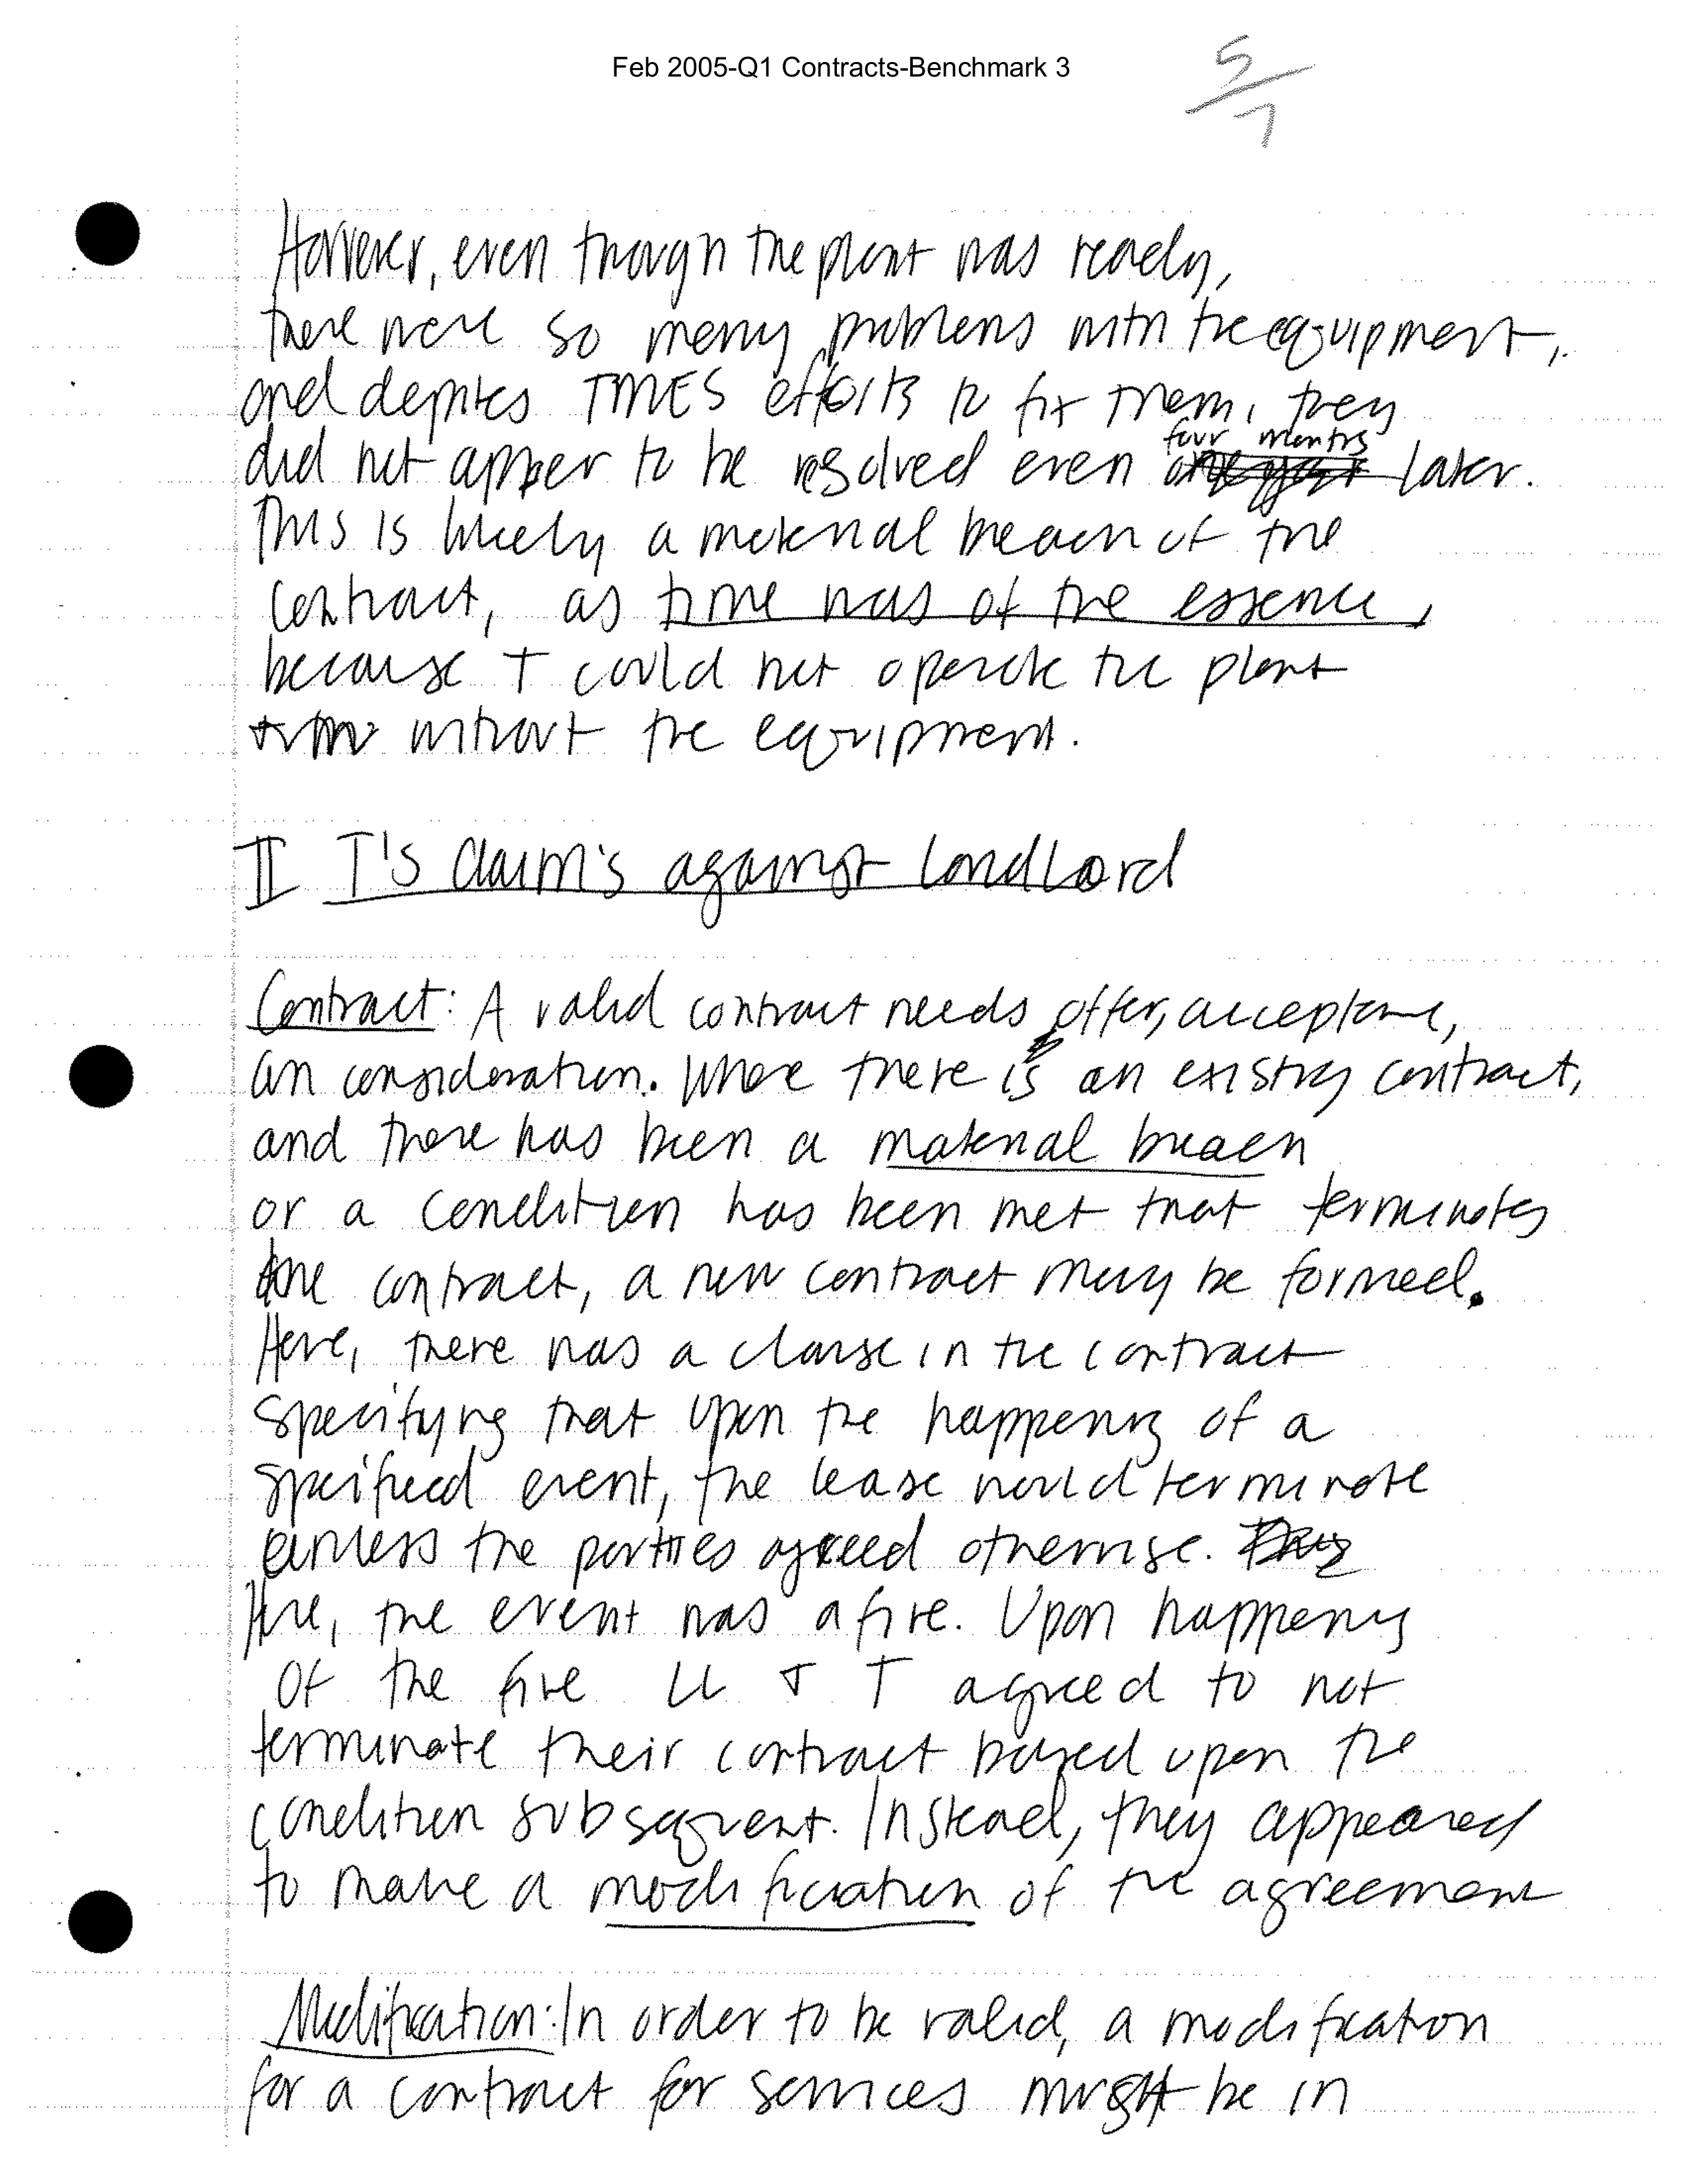 Feb 2005-Q1 Contracts-Benchmark 3
5/7
However, even though the plant was ready,
there were so many problems with the equipment,
and depites TMES efforts to fix them, they
did not apper to be resolved even four months later.
This is likely a material breach of the
contract, as time was of the essence,
because T could not operate the plant
without the equipment.
II T's Claim's against LandLord
Contract: A valid contract needs offer, acceptance,
an consideration. Where there is an existing contract,
and there has been a material breach
or a condition has been met that terminates
the contract, a new contract may be formed.
Here, there was a clause in the contract
specifying that upon the happening of a
specified event, the lease would terminate
unless the parties agreed otherwise.
Here, the event was a fire. Upon happening
of the fire LL & T agreed to not
terminate their contract based upon the
condition subsequent. Instead, they appeared
to make a modification of the agreement
Modification: In order to be valid, a modification
for a contract for services must be in